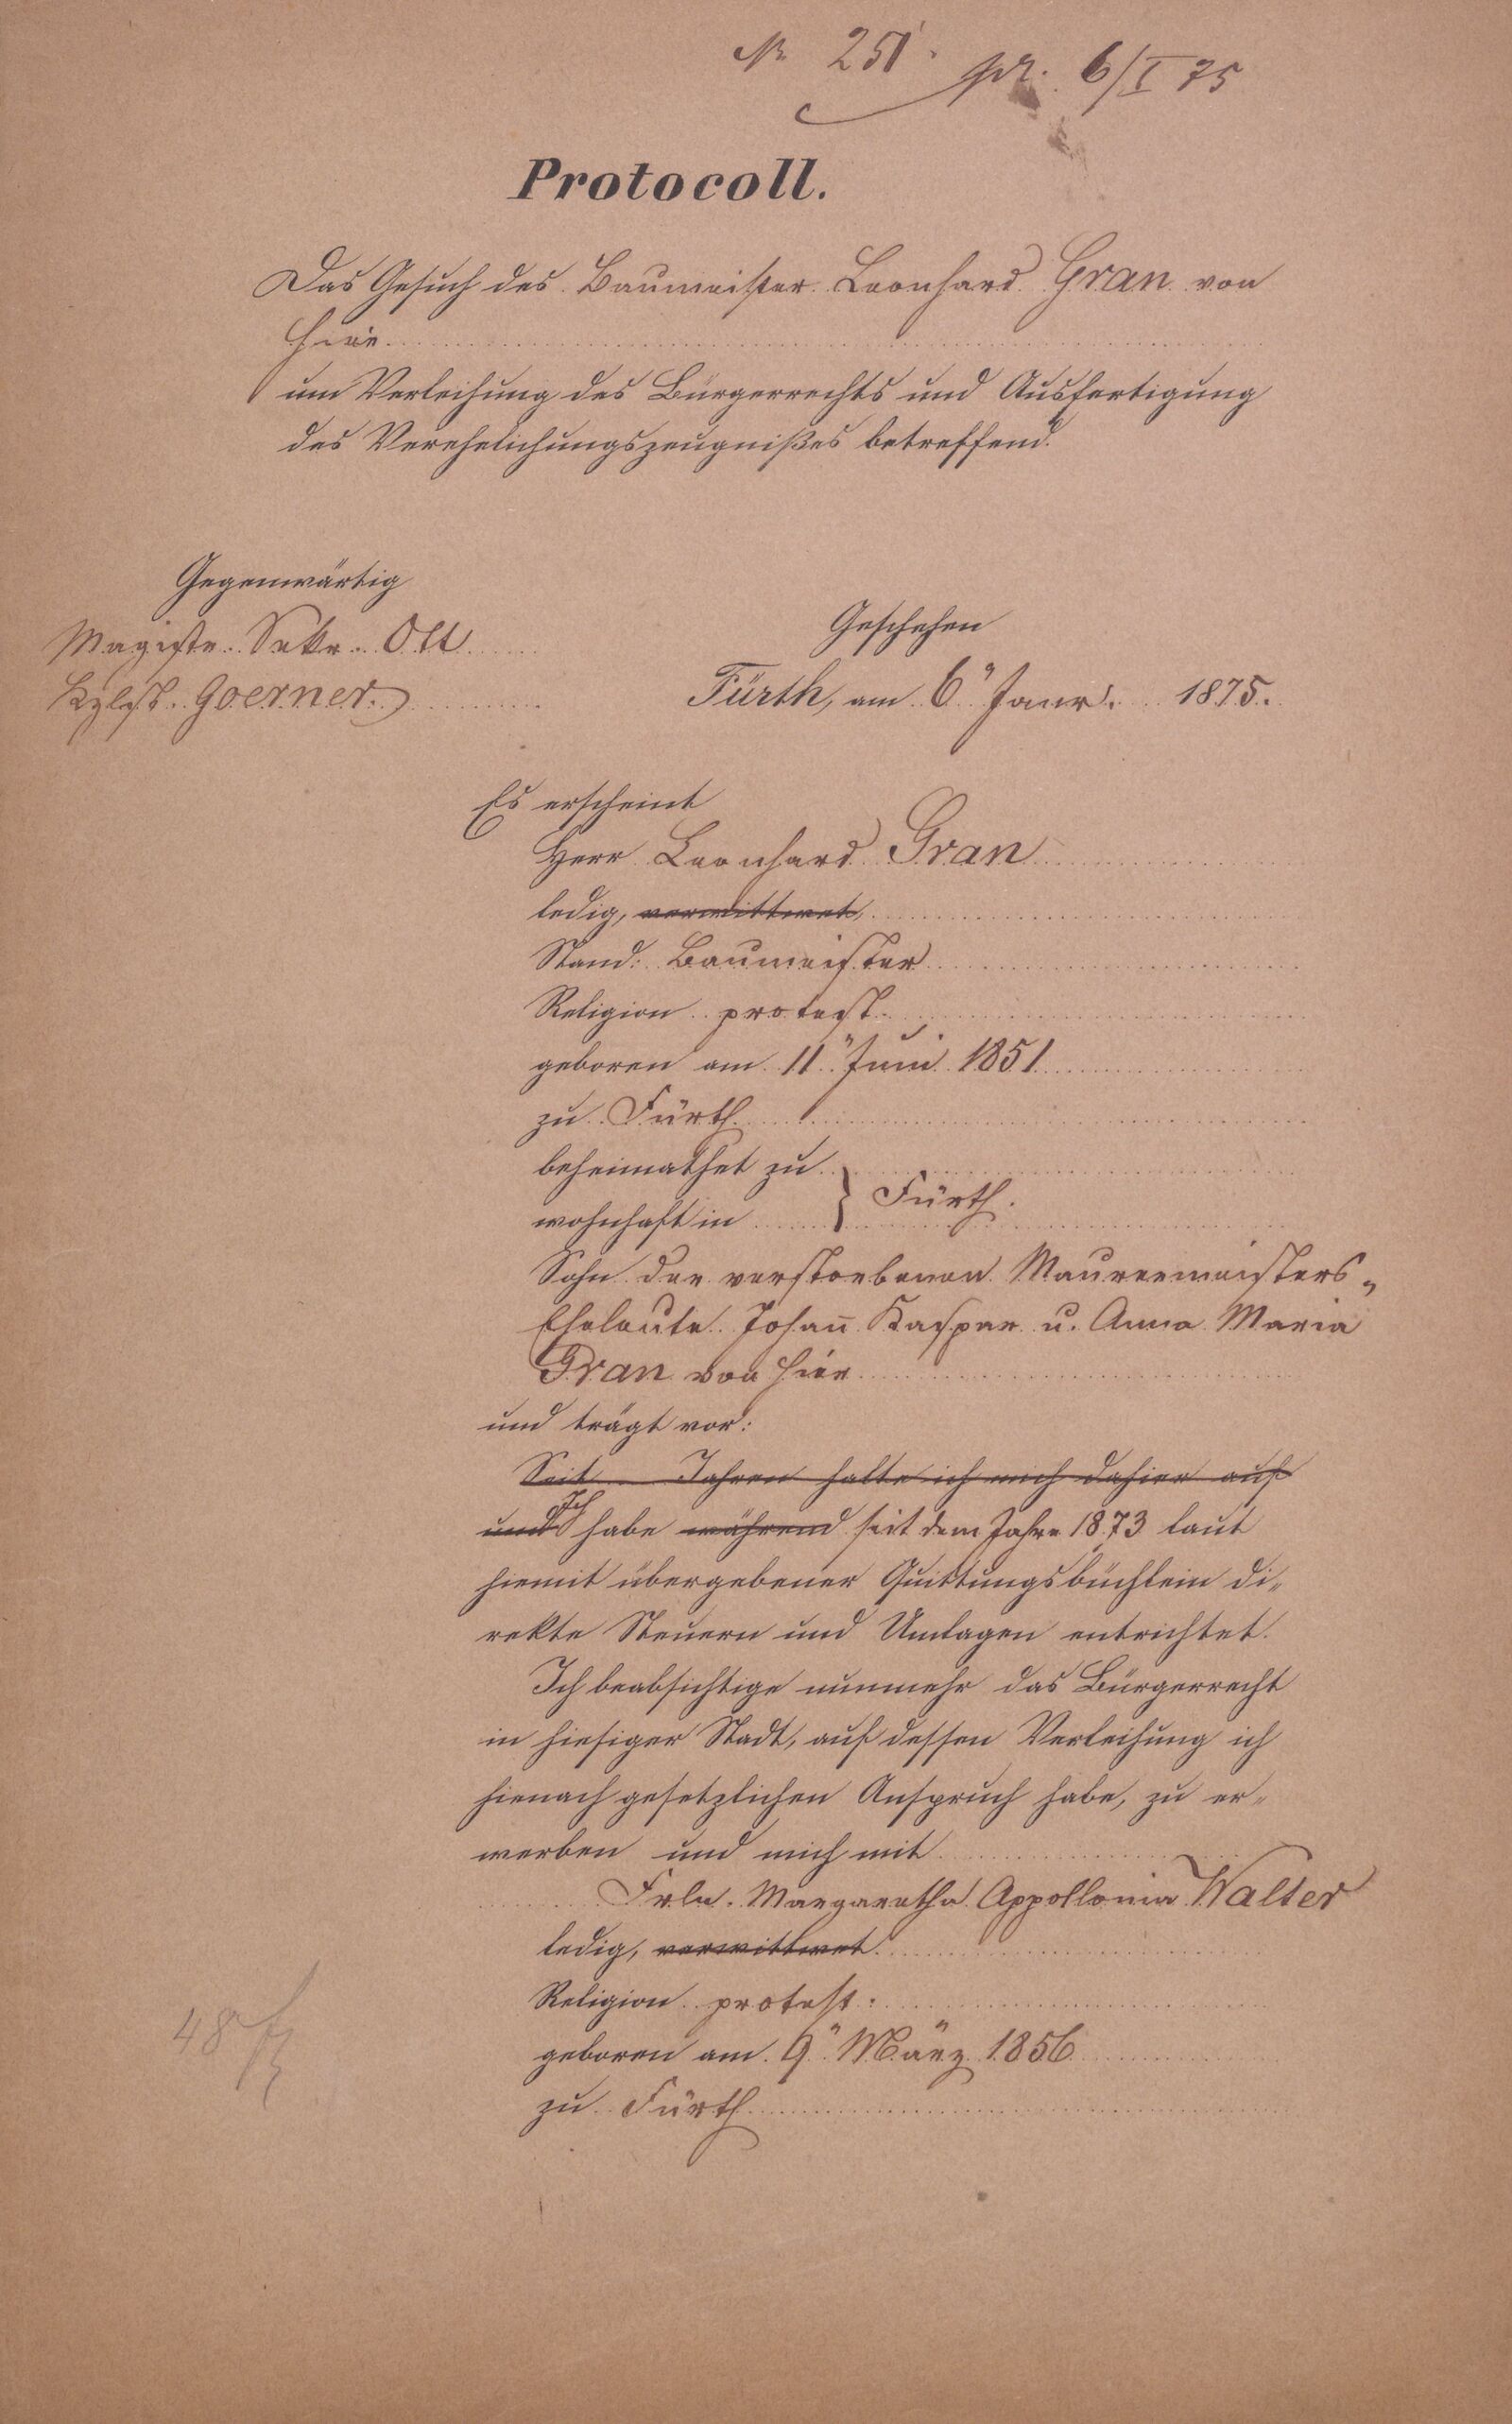 № 251. pr. 6/I 75
Protocoll.
Das Gesuch des Baumeister Leonhard Gran von
hier
um Verleihung des Bürgerrechts und Ausfertigung
des Verehelichungszeugnißes betreffend.
Gegenwärtig
Magistr. Sekr. Ott
Kzlist. Goerner.
Geschehen
Fürth, am 6" Janr. 1875.
Es erscheint
Herr Leonhard Gran
ledig, verwittwet,
Stand: Baumeister
Religion protest.
geboren am 11" Juni 1851
zu Fürth
beheimathet zu
wohnhaft in } Fürth.
Sohn der verstorbenen Maurermeisters-
Eheleute Johann Kaspar u. Anna Maria
Gran von hier
und trägt vor:
Seit Jahren halte ich mich dahier auf
und Ich habe während seit dem Jahre 1873 laut
hiemit übergebener Quittungsbüchlein di-
rekte Steuern und Umlagen entrichtet.
Ich beabsichtige nunmehr das Bürgerrecht
in hiesiger Stadt, auf dessen Verleihung ich
hienach gesetzlichen Anspruch habe, zu er-
werben und mich mit
Frln. Margaretha Appollonia Walter
ledig, verwittwet.
Religion protest.
geboren am 9" März 1856
zu Fürth
48